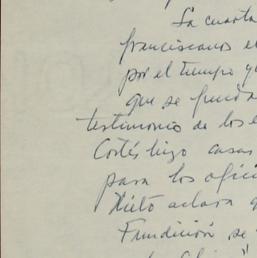 La cuarta
franciscanos e
por el tiempo y
que se fund
testimonio de los e
Cortés hizo casas
para los ofici
Nieto aclara q
Fundición se